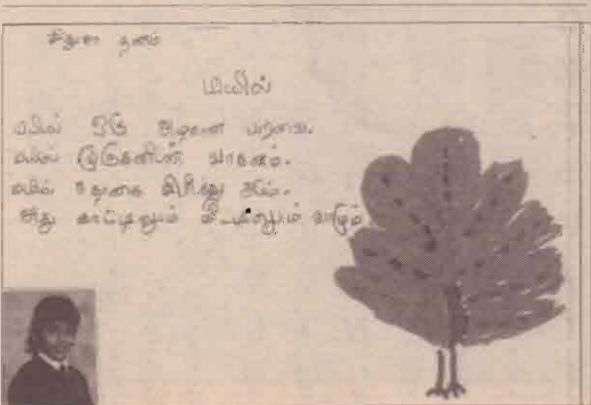 மயில்
மயில் ஒரு அழகான பறவை.
மயில் முருகனின் வாகனம்.
மயில் தோகை விரித்து ஆடும்.
அது காட்டிலும் வீட்டிலும் வாழும்